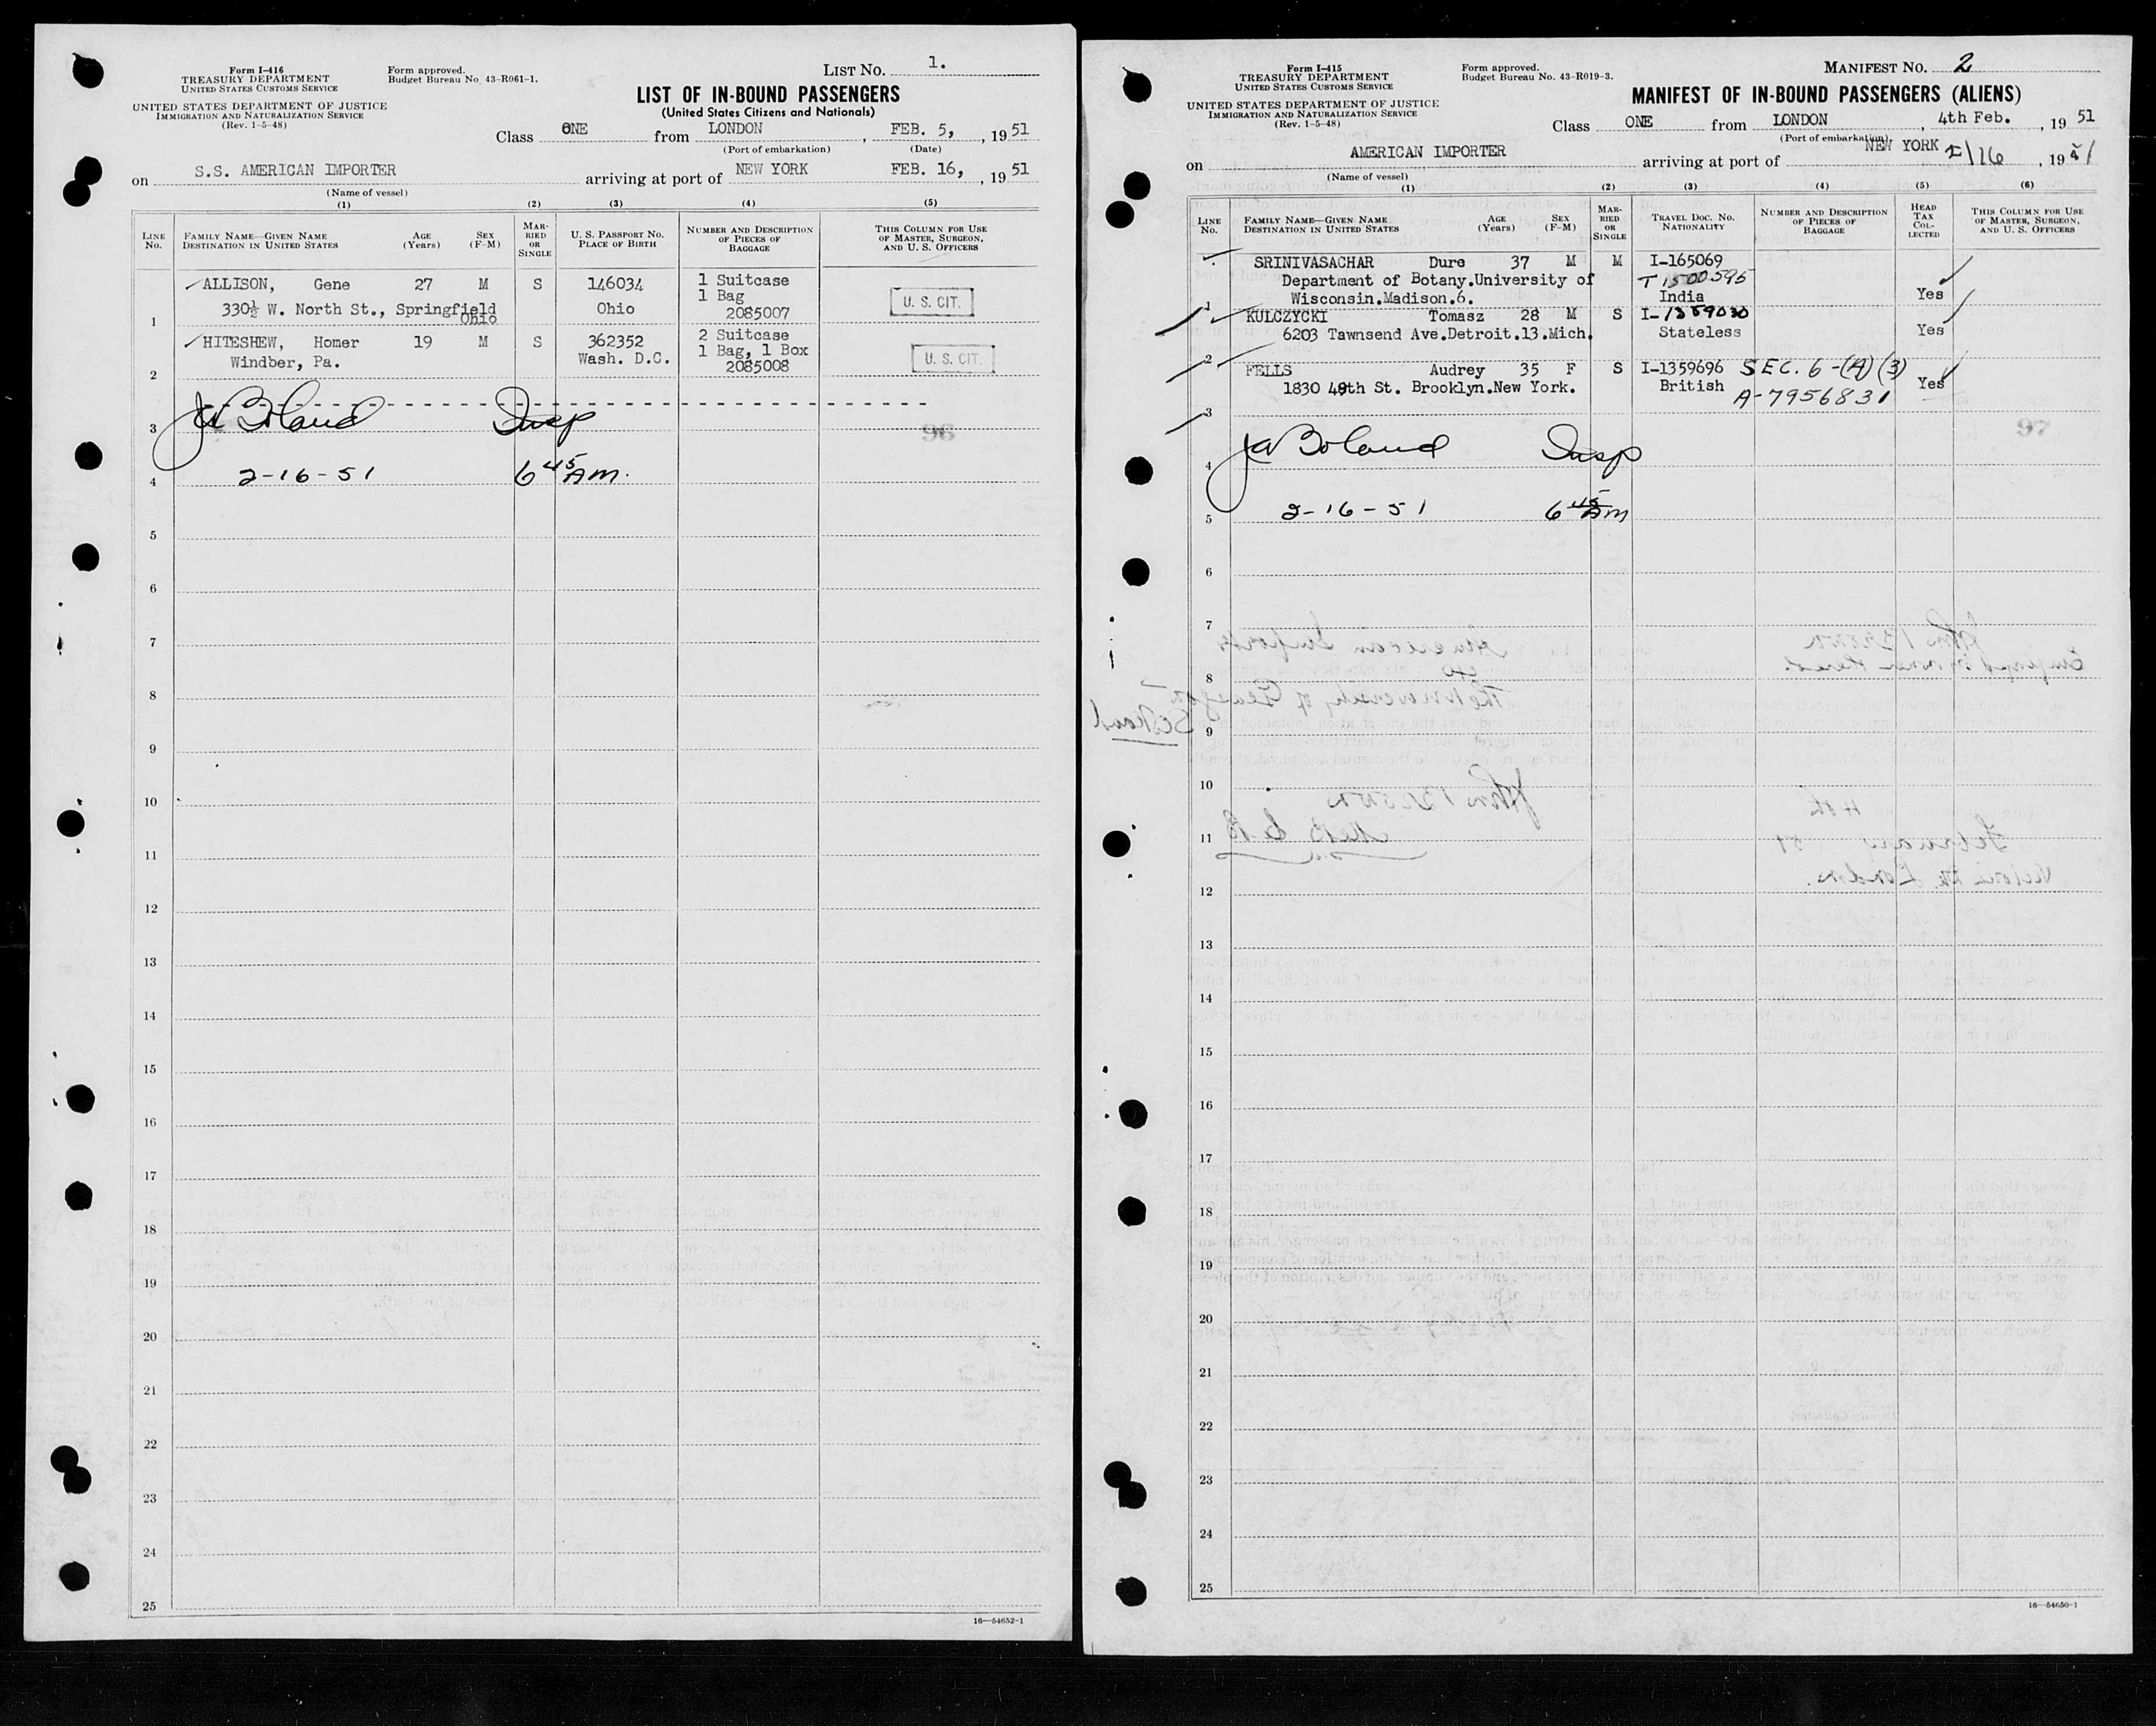 Form I-416
TREASURY DEPARTMENT
UNITED STATES CUSTOMS SERVICE
UNITED STATES DEPARTMENT OF JUSTICE
IMMIGRATION AND NATURALIZATION SERVICE
(Rev. 1-5-48)
Form approved.
Budget Bureau No. 43-R061-1.
LIST NO. 1.
LIST OF IN-BOUND PASSENGERS
(United States Citizens and Nationals)
Class ONE from LONDON, FEB. 5, 1951
(Port of embarkation) (Date)
on S.S. AMERICAN IMPORTER arriving at port of NEW YORK FEB. 16, 1951
(Name of vessel)
(1) (2) (3) (4) (5)
LINE NO.
FAMILY NAME—GIVEN NAME DESTINATION IN UNITED STATES
AGE (Years)
SEX (F-M)
MARRIED OR SINGLE
U. S. PASSPORT NO. PLACE OF BIRTH
NUMBER AND DESCRIPTION OF PIECES OF BAGGAGE
THIS COLUMN FOR USE OF MASTER, SURGEON, AND U. S. OFFICERS
ALLISON, Gene 27 M S 146034 1 Suitcase
1 Bag
330½ W. North St., Springfield Ohio Ohio 2085007 U. S. CIT.
1
HITESHEW, Homer 19 M S 362352 2 Suitcase
Windber, Pa. Wash. D.C. 1 Bag, 1 Box
2085008 U. S. CIT.
2
JW Boland Insp
3 96
2-16-51 6 45 AM.
4
5
6
7
8
9
10
11
12
13
14
15
16
17
18
19
20
21
22
23
24
25
16—54652-1
Form I-415
TREASURY DEPARTMENT
UNITED STATES CUSTOMS SERVICE
UNITED STATES DEPARTMENT OF JUSTICE
IMMIGRATION AND NATURALIZATION SERVICE
(Rev. 1-5-48)
Form approved.
Budget Bureau No. 43-R019-3.
MANIFEST NO. 2
MANIFEST OF IN-BOUND PASSENGERS (ALIENS)
Class ONE from LONDON, 4th Feb., 1951
(Port of embarkation)
on AMERICAN IMPORTER arriving at port of NEW YORK 2/16, 1951
(Name of vessel)
(1) (2) (3) (4) (5) (6)
LINE NO.
FAMILY NAME—GIVEN NAME DESTINATION IN UNITED STATES
AGE (Years)
SEX (F-M)
MARRIED OR SINGLE
TRAVEL DOC. NO. NATIONALITY
NUMBER AND DESCRIPTION OF PIECES OF BAGGAGE
HEAD TAX COLLECTED
THIS COLUMN FOR USE OF MASTER, SURGEON, AND U. S. OFFICERS
SRINIVASACHAR Dure 37 M M I-165069
Department of Botany.University of T1500595
Wisconsin.Madison.6. India Yes
1
KULCZYCKI Tomasz 28 M S I-1359030
6203 Tawnsend Ave.Detroit.13.Mich. Stateless Yes
2
FELLS Audrey 35 F S I-1359696 SEC. 6-(A)(3)
1830 49th St. Brooklyn.New York. British A-7956831 Yes
3
97
JW Boland Insp
4
2-16-51 6 45 AM
5
6
7
8
9
10
11
12
13
14
15
16
17
18
19
20
21
22
23
24
25
16—54650-1